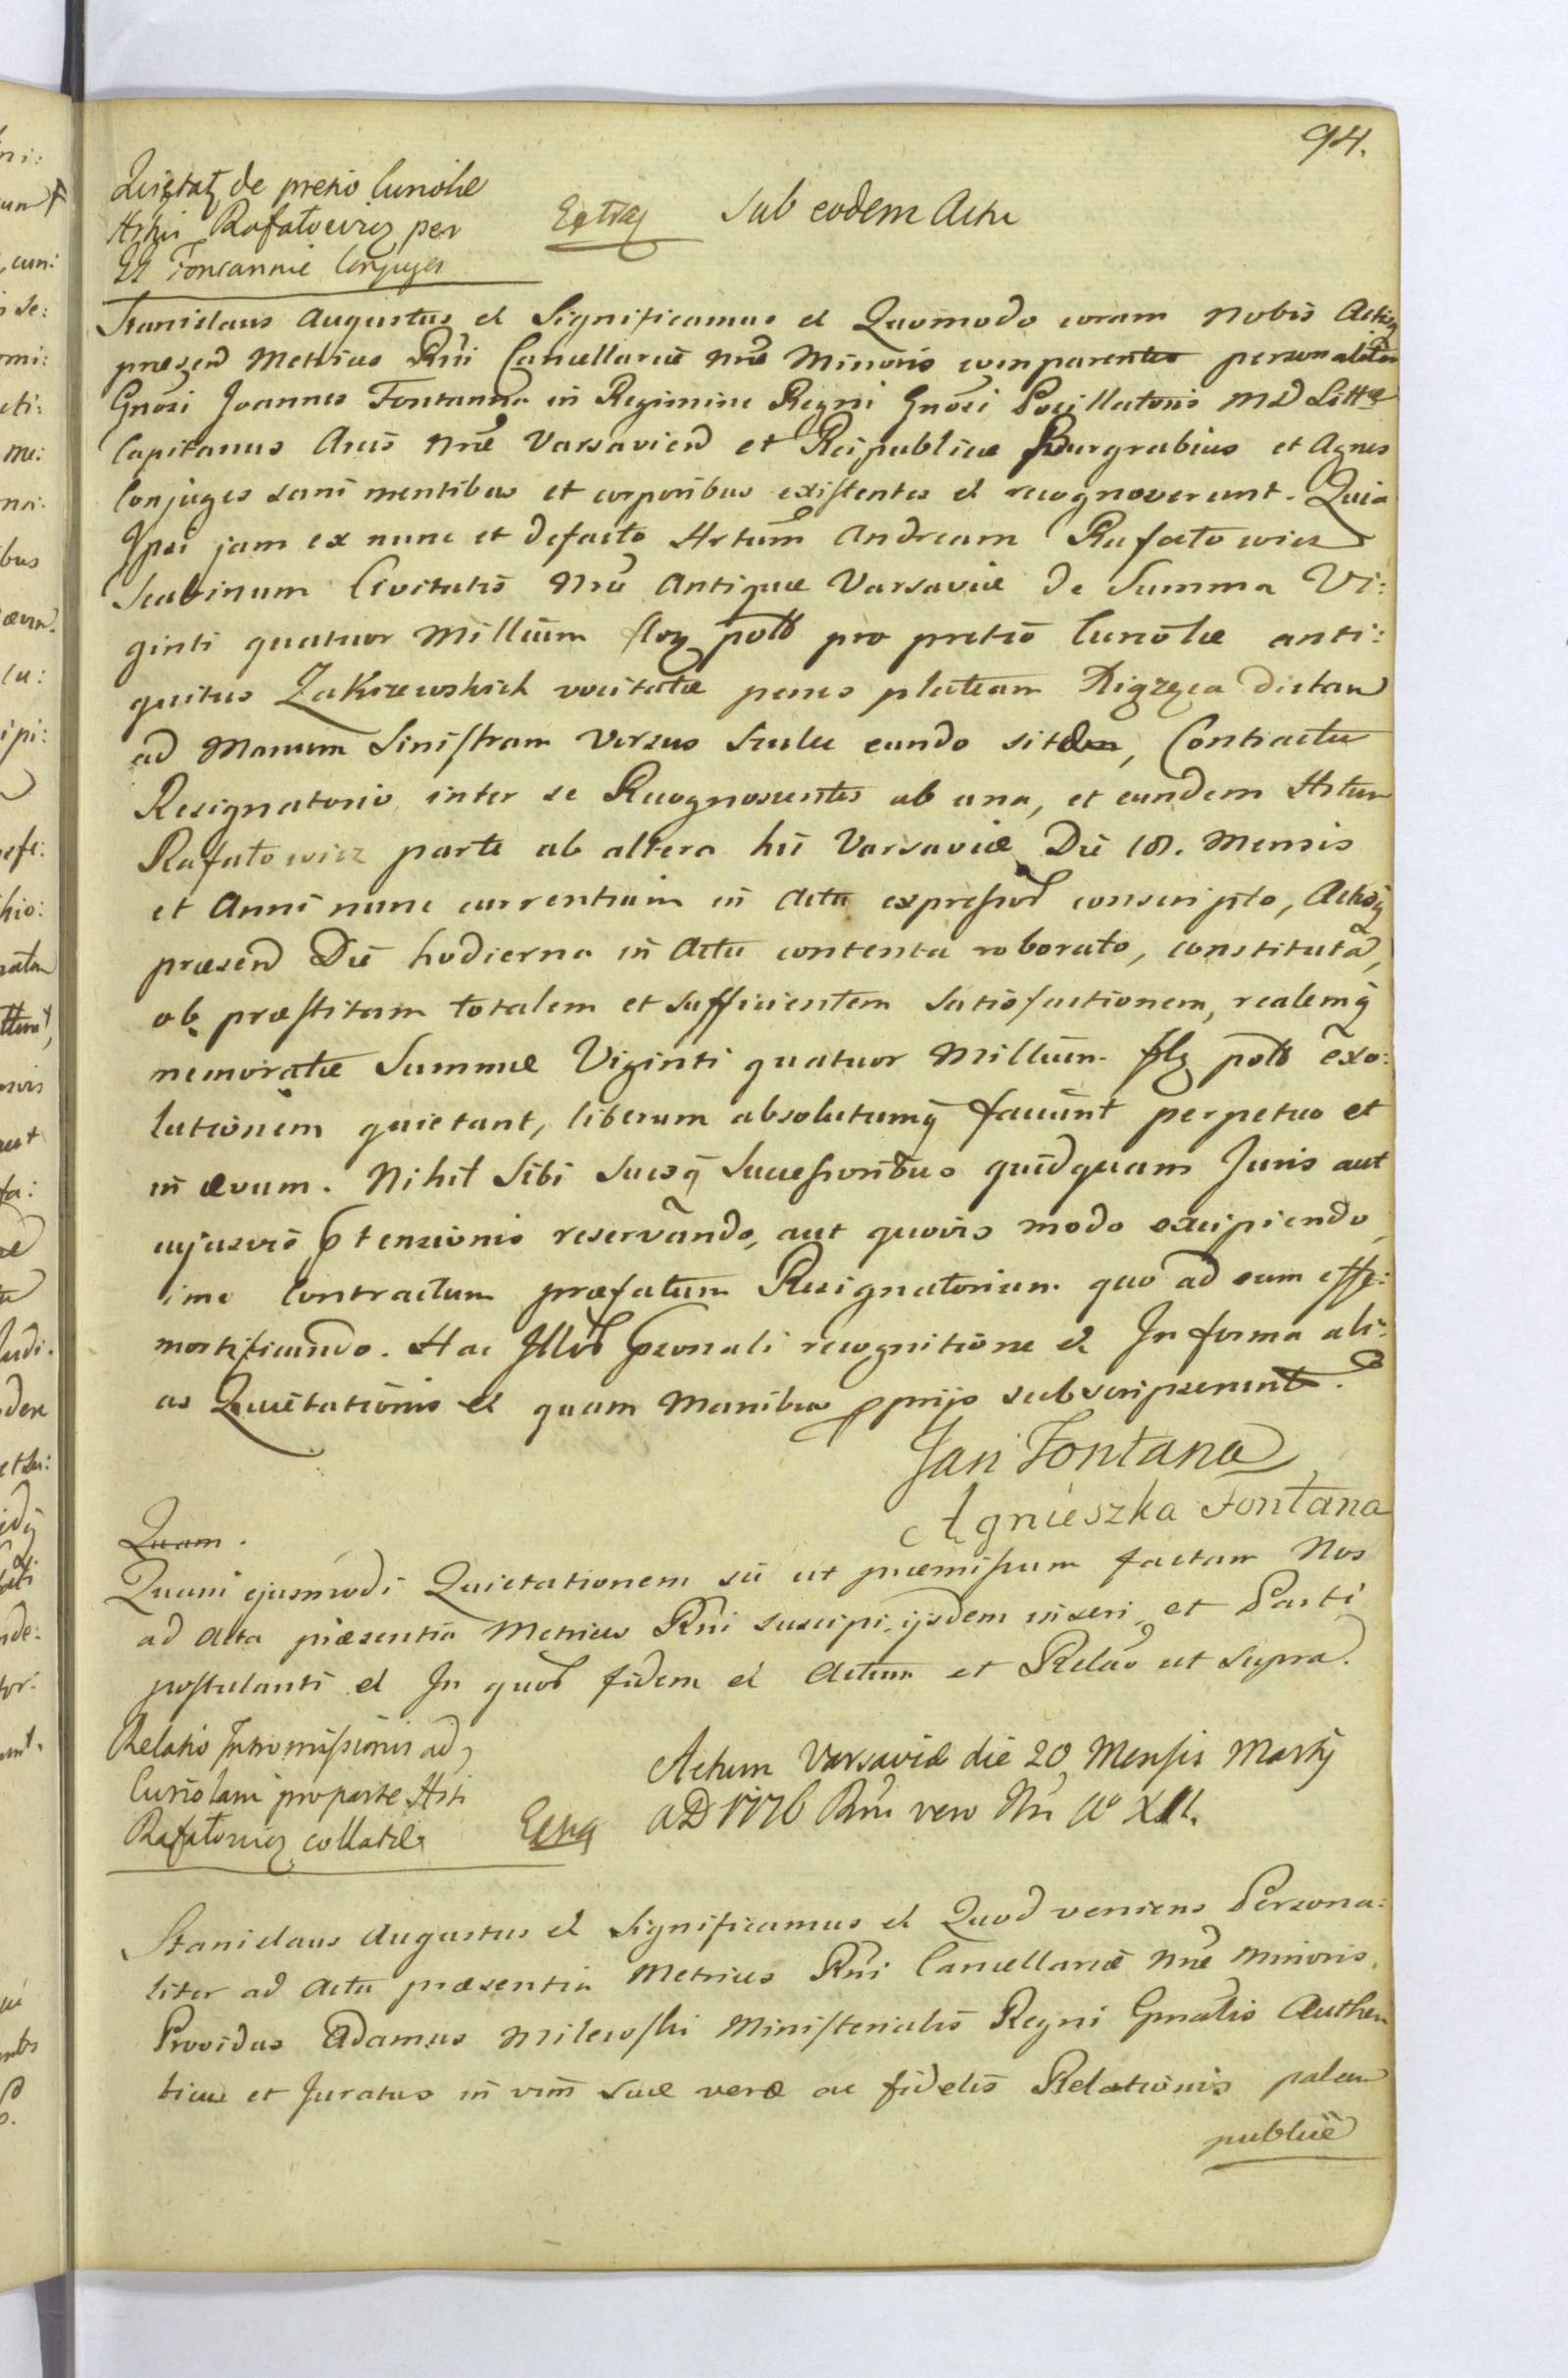 94.
Quietaõ de pretio Curiolæ
Hstu Rafatowicz per
GG Fontannie Conjuges
Extrađ Sub eodem Actu
Stanislaus Augustus et Significamus et Quomodo coram Nobis Actisq
præsen Metrices Rni Cancellariæ Nræ Minoris comparentes personaliter
Gnosi Joannes Fontanna in Regimine Regni Gnosi Pocillatoris MD Littæ
Capitanus Arcis Nræ Varsavien et Reipublicæ Burgrabius et Agnes
Conjuges sani mentibus et corporibus existentes et recognoverunt. Quia
Ipsi jam ex nunc et defacto Hstum Andream Rafatowicz
Scabinum Civitatis Nræ Antiquæ Varsaviæ de Summa Vi:
ginti quatuor Millium flor poll pro pretio Curiolæ anti:
quitus Zakrzewskich vocitatæ penes plateam Rigzęca dictam
ad Manum Sinistram versus Sculec eundo sitæ, Contractu
Resignatorio inter se Recognoscentes ab una, et eundem Hstum
Rafatowicz parte ab altera hic Varsaviæ Die 18. Mensis
et Anni nunc currentium in Actu expressorum conscripto, Actisq
præsen Die hodierna in Actu contenta roborato, constituta,
ob præstitam totalem et sufficientem satisfactionem, realemq
memoratæ Summæ Viginti quatuor Millium flor poll exo:
lutionem quietant, liberum absolutumq faciunt perpetuo et
in ævum. Nihil Sibi Suisq Successoribus quidquam Juris aut
cujusvis prætensionis reservando, aut quovis modo excipiendo,
imo Contractum præfatum Resignatorium quo ad eum effe:
mortificando. Hac Illorum personali recognitione et In forma ali:
as Quietationis et quam Manibus pprijs subscripserunt.
Jan Fontana
Agnieszka Fontana
Quam.
Quam ejusmodi Quietationem sic ut præmissum factam Nos
ad Acta præsentia Metrices Rni suscipi, ijsdem inseri, et Parti
postulanti et In quorum fidem et Actum et Relaõ ut supra.
Relatio Intromissionis ad
Curiolam pro parte Hsti
Rafatowicz collatæ
Extrađ Actum Varsaviæ die 20 Mensis Martij
AD 1776 Rni vero Nri Aº XII.
Stanislaus Augustus et Significamus et Quod veniens Persona:
liter ad Acta præsentia Metrices Rni Cancellariæ Nræ Minoris.
Providus Adamus Milewski Ministerialis Regni Gnralis Authen
ticus et Juratus in vim suæ veræ ac fidelis Relationis palam
publice